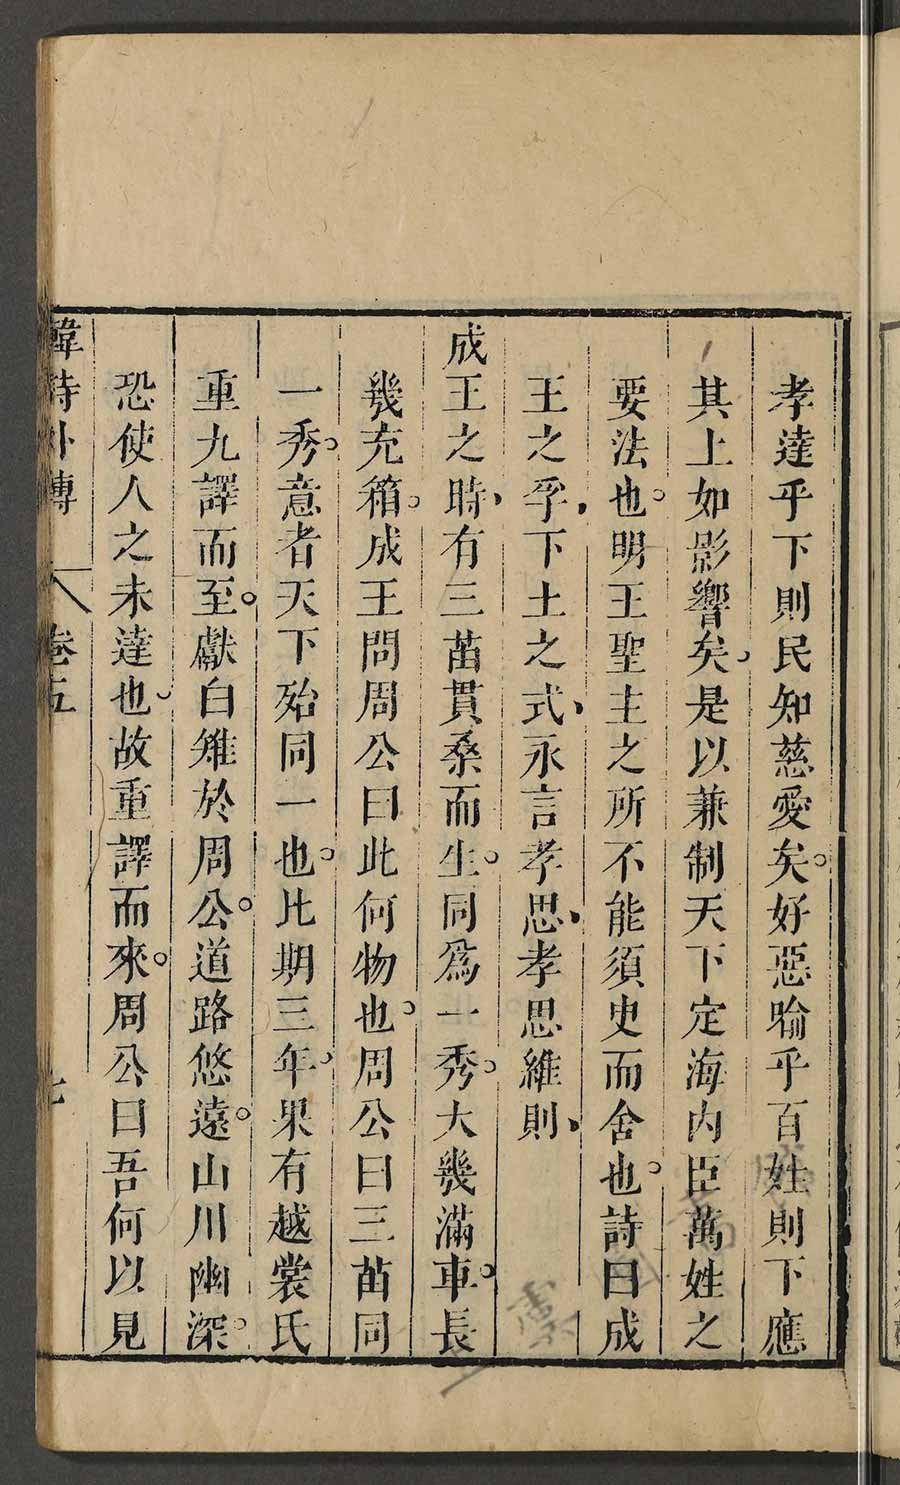 孝達乎下則民知慈愛矣。好惡喻乎百姓則下應
其上如影響矣。是以兼制天下定海内臣萬姓之
要法也。明王聖主之所不能須臾而舍也。詩曰成
王之孚、下土之式、永言孝思、孝思維則、
成王之時、有三苗貫桑而生。同爲一秀。大幾滿車。長
幾充箱。成王問周公曰此何物也。周公曰三苗同
一秀。意者天下殆同一也。比期三年。果有越裳氏
重九譯而至。獻白雉於周公。道路悠遠。山川幽深。
恐使人之未達也。故重譯而來。周公曰吾何以見
韓詩外傳 卷五 七